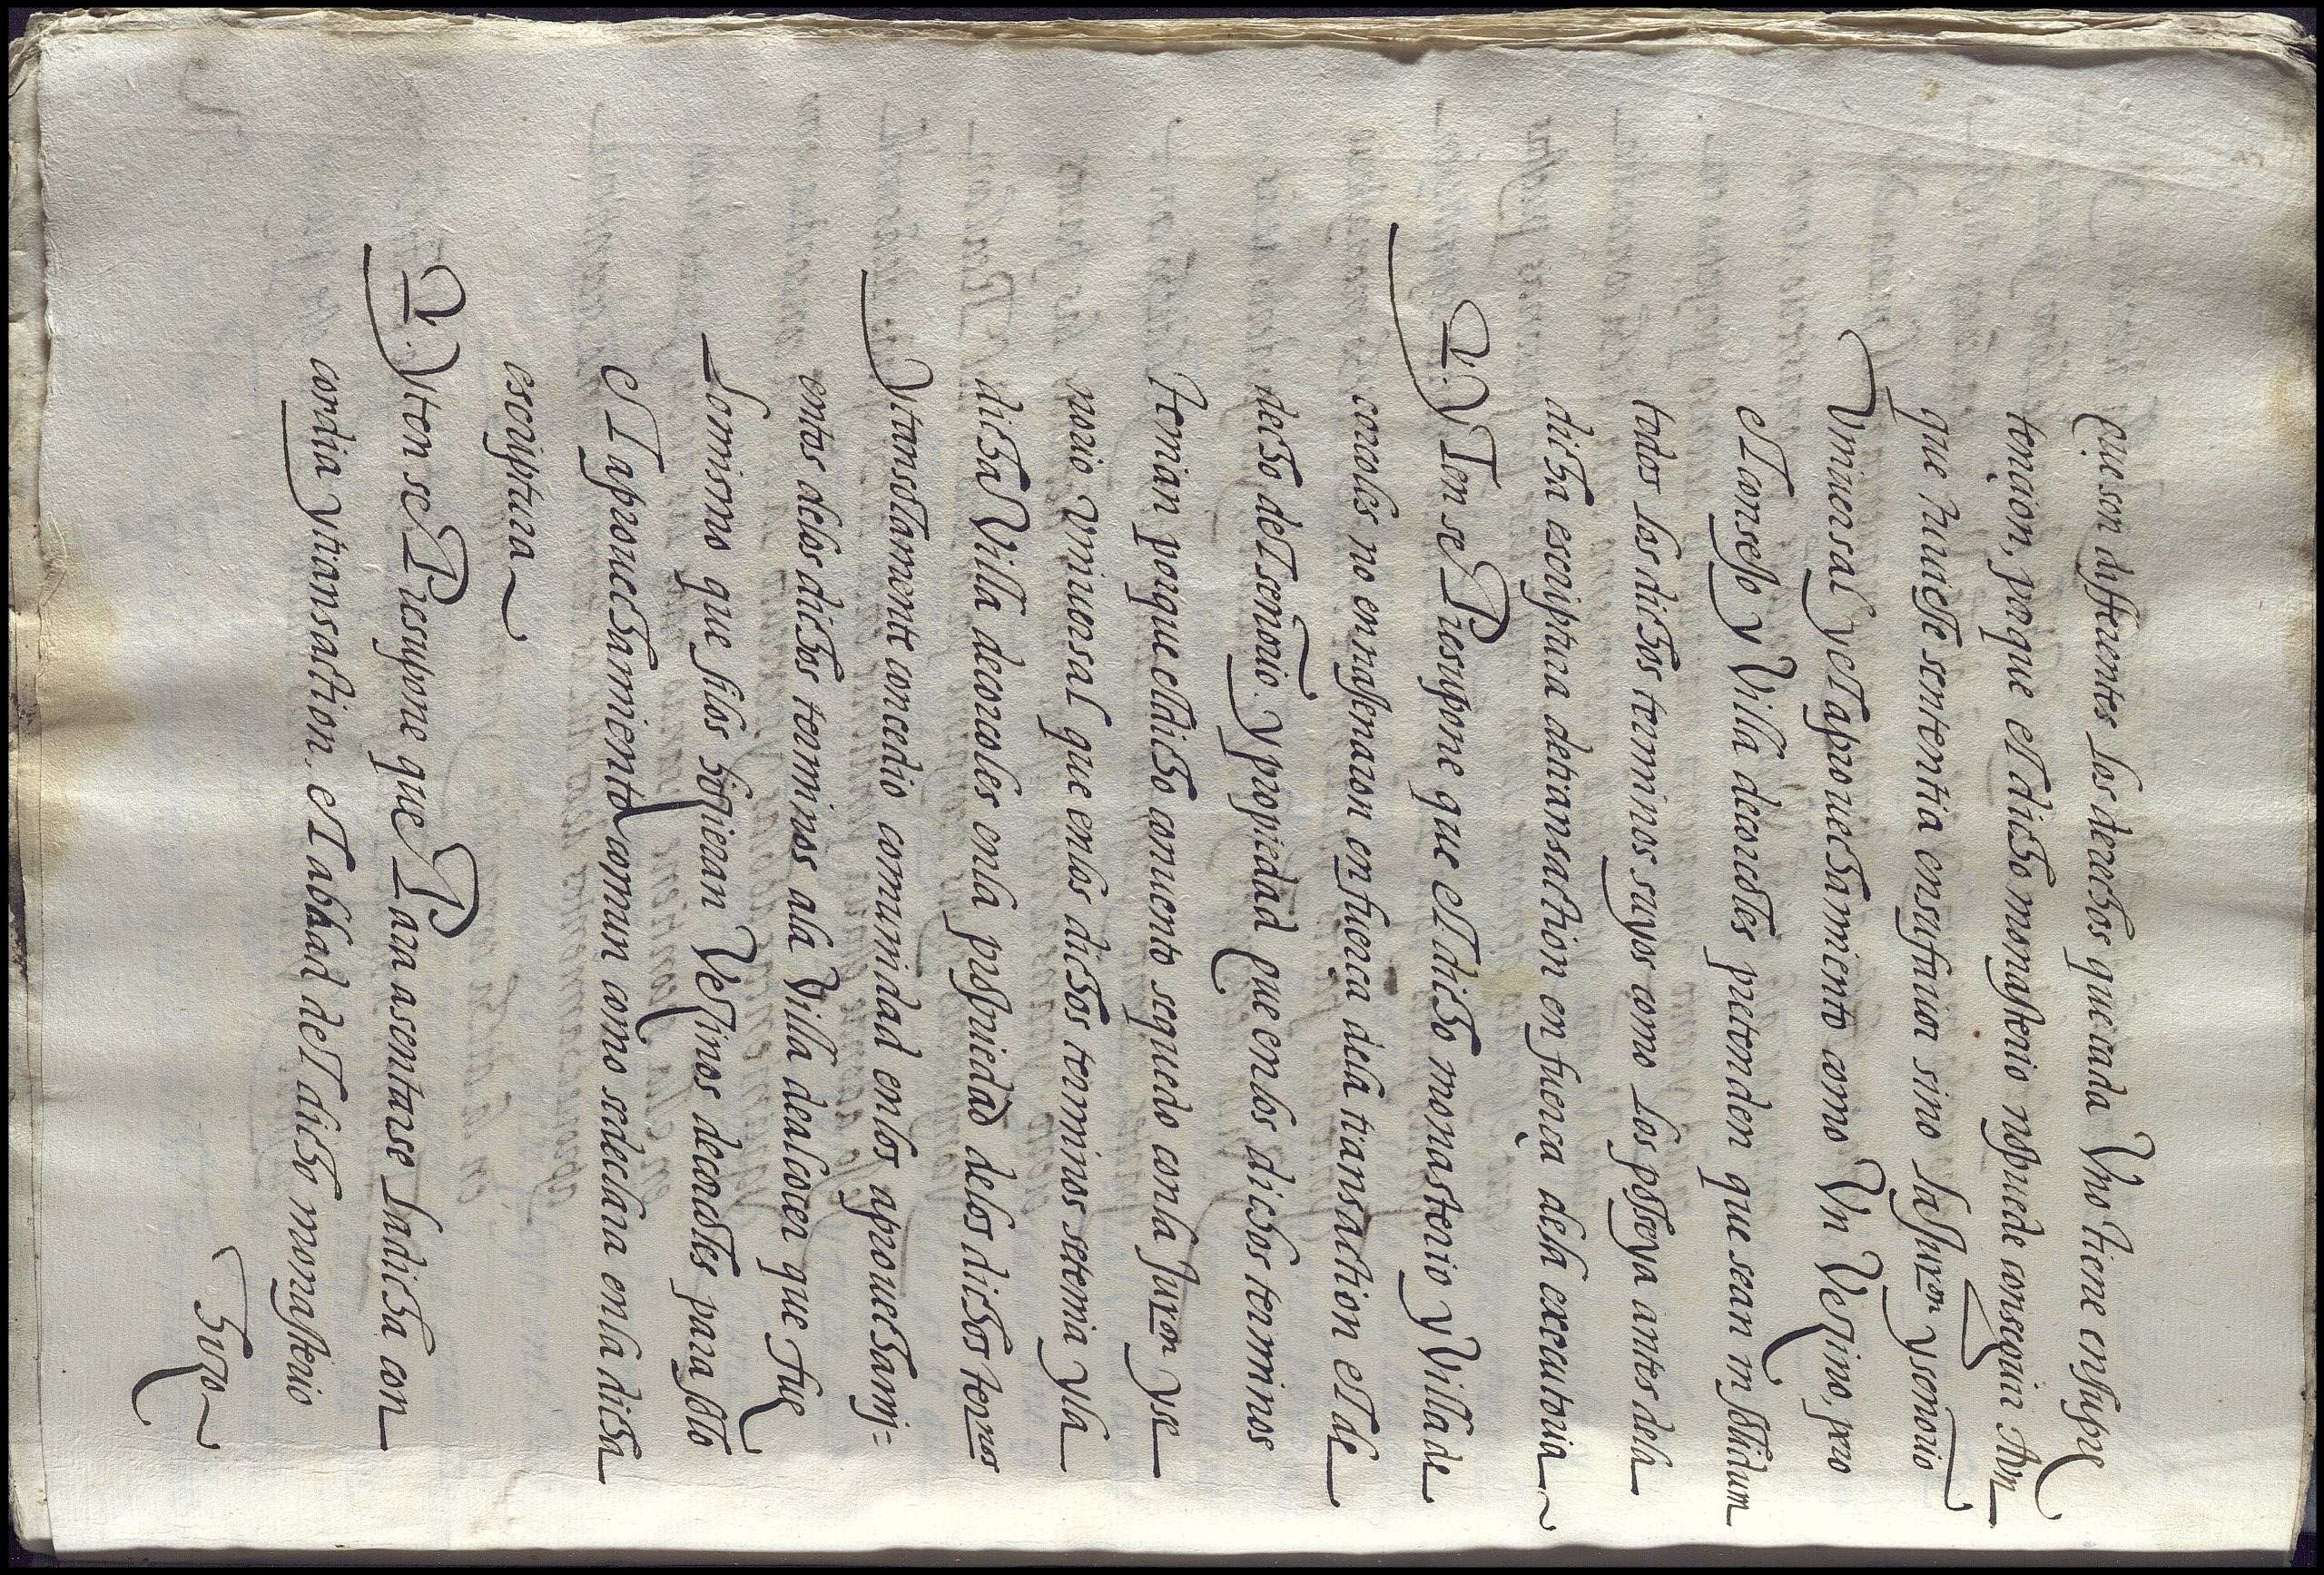 que son differentes los derechos que cada Uno tiene en su pre
tençion, porque el dicho monasterio no puede conseguir Aun
que huuiesse sententia en su fauor sino la Juron y señorio
Vniuersal y el aprouechamiento como Un Vezino, pero
el Consejo y Villa de corcoles pretenden que sean in solidum
todos los dichos terminos suyos como los posseya antes dela
dicha escriptura de transaction en fuerça dela executoria
Yten se Presupone que el dicho monasterio y Villa de
corcoles no enrassenaron en fuerça dela transaction el de
recho del señorio y propiedad que en los dichos terminos
tenian porque el dicho conuento se quedo con la Juron y se
ñorio vniuersal que en los dichos terminos se tenia y la
dicha Villa de corcoles en la propriedad delos dichos terminos
y tan solamente concedio comunidad en los aprouechami=
entos delos dichos terminos a la Villa de alcocer que fue
lo mismo que si los hizieran Vezinos de corcoles para solo
el aprouechamiento comun como se declara en la dicha
escriptura
Yten se Presupone que Para asentarse la dicha con
cordia y transaction, el abbad del dicho monasterio
hizo